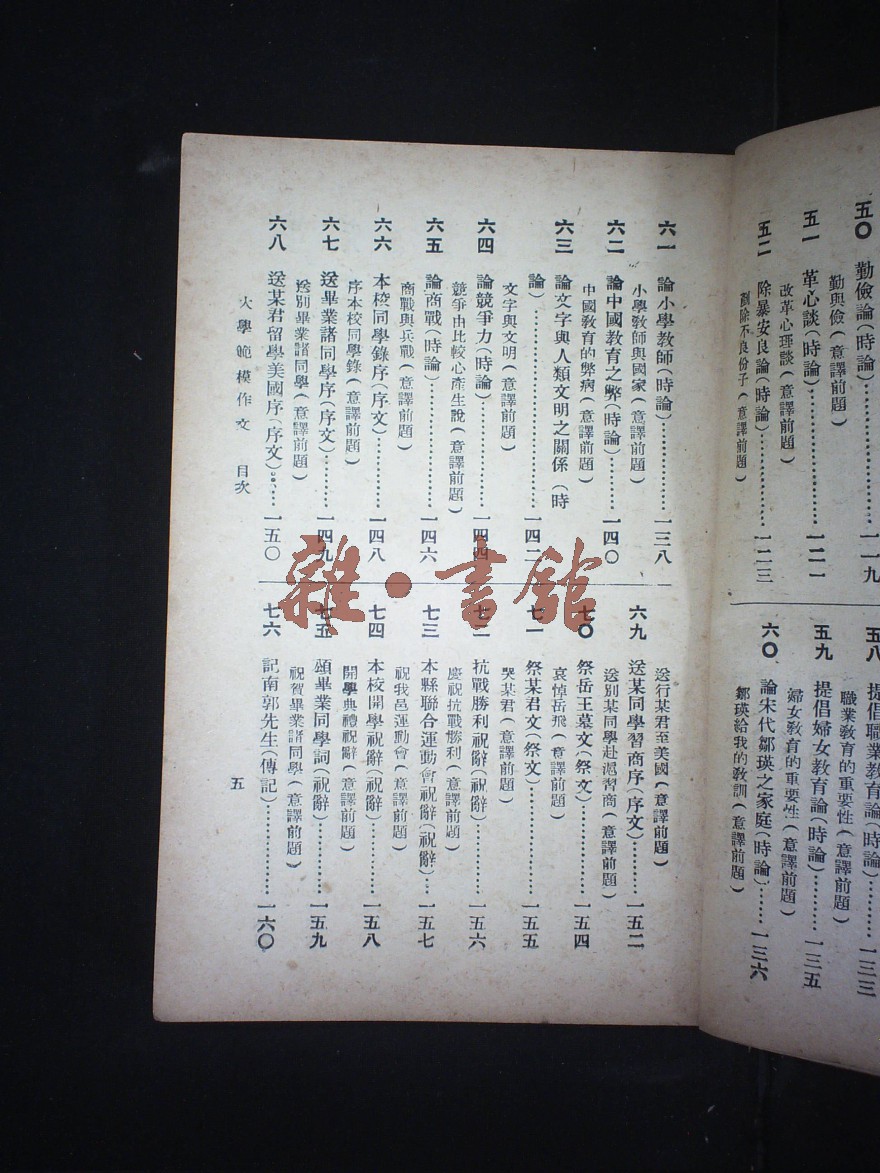 五〇 勤儉論(時論)…………一一九
勤與儉(意譯前題)
五一 革心談(時論)…………一二一
改革心理談(意譯前題)
五二 除暴安良論(時論)…………一二三
剷除不良份子(意譯前題)
五八 提倡職業教育論(時論)…………一三三
職業教育的重要性(意譯前題)
五九 提倡婦女教育論(時論)…………一三五
婦女教育的重要性(意譯前題)
六〇 論宋代鄒瑛之家庭(時論)……一三六
鄒瑛給我的教訓(意譯前題)
六一 論小學教師(時論)…………一三八
小學教師與國家(意譯前題)
六二 論中國教育之弊(時論)……一四〇
中國教育的弊病(意譯前題)
六三 論文字與人類文明之關係(時
論)…………一四二
文字與文明(意譯前題)
六四 論競爭力(時論)…………一四四
競爭由比較心產生說(意譯前題)
六五 論商戰(時論)…………一四六
商戰與兵戰(意譯前題)
六六 本校同學錄序(序文)……一四八
序本校同學錄(意譯前題)
六七 送畢業諸同學序(序文)……一四九
送別畢業諸同學(意譯前題)
六八 送某君留學美國序(序文)……一五〇
送行某君至美國(意譯前題)
六九 送某同學習商序(序文)……一五二
送別某同學赴滬習商(意譯前題)
七〇 祭岳王墓文(祭文)…………一五四
哀悼岳飛(意譯前題)
七一 祭某君文(祭文)…………一五五
哭某君(意譯前題)
七二 抗戰勝利祝辭(祝辭)……一五六
慶祝抗戰勝利(意譯前題)
七三 本縣聯合運動會祝辭(祝辭)…一五七
祝我邑運動會(意譯前題)
七四 本校開學祝辭(祝辭)……一五八
開學典禮祝辭(意譯前題)
七五 頌畢業同學詞(祝辭)……一五九
祝賀畢業諸同學(意譯前題)
七六 記南郭先生(傳記)…………一六〇
大學範模作文 目次
五
雜·書館